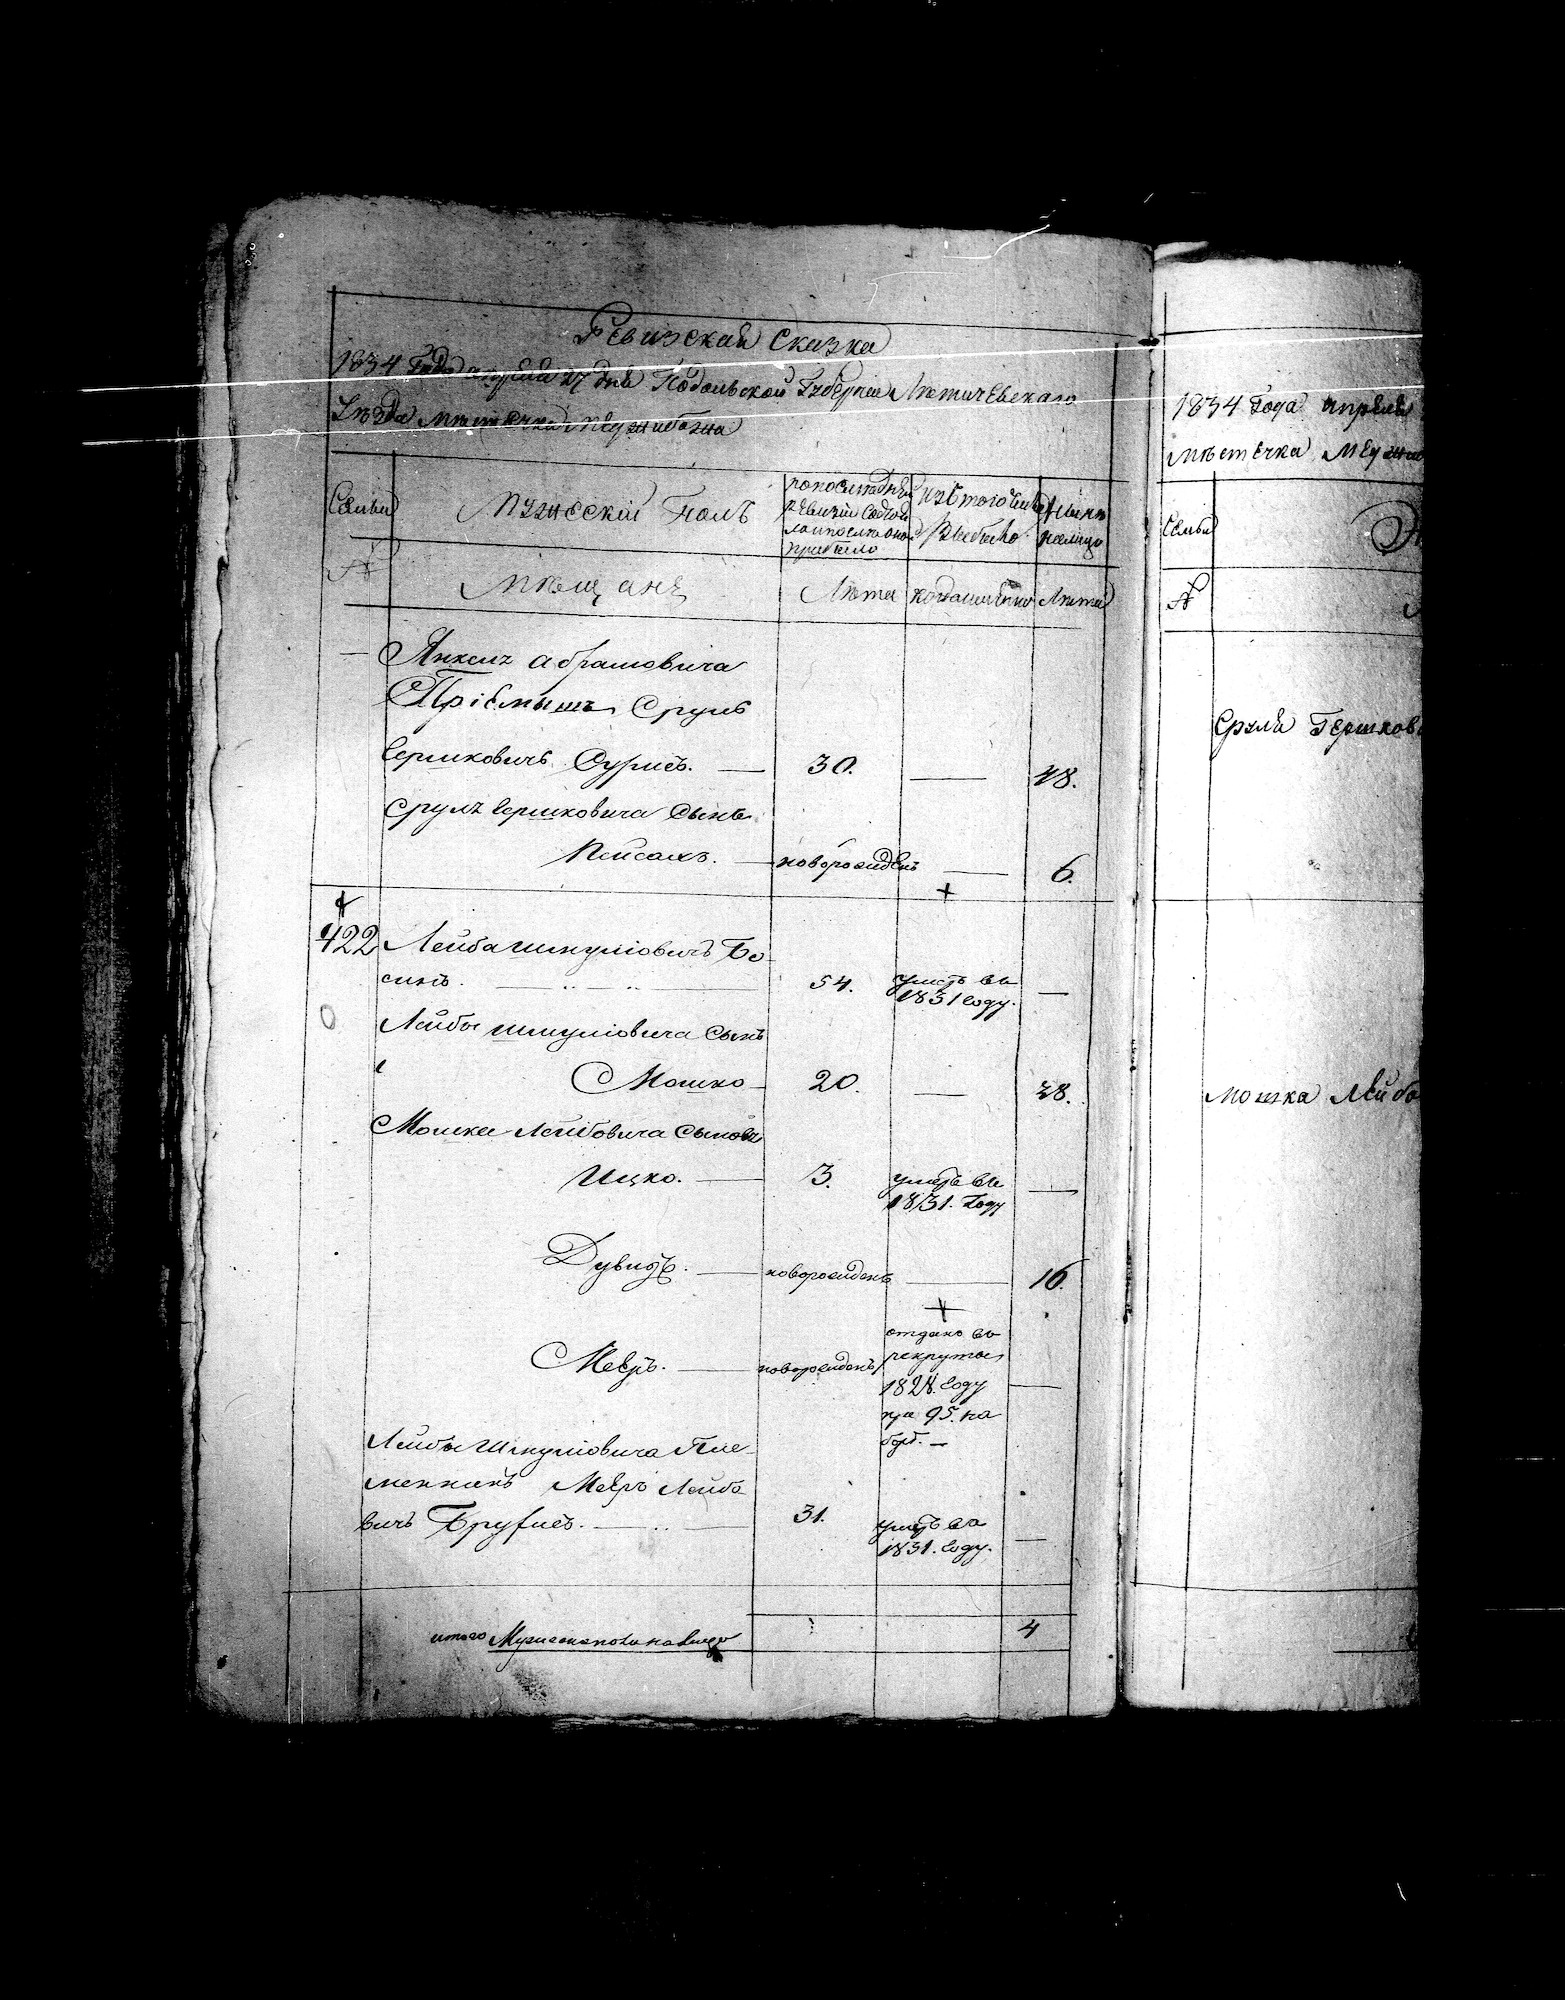 Ревизская Сказка
1834 Года апреля 27 дня Подольской Губернiи Летичевскаго
Уезда местечка Меджибожа
Семьи
Мужескiй Полъ
по последней ревизiи состояло и после оной прибыло
изъ того числа выбыло
ныне налицо
№
Мещанъ
Лета
когда именно
Лета
Янкель Абрамовича
Прiемышъ Сруль
Гершковичъ 30. 48.
Сруль Гершковича Сынъ
Пейсахъ. новорожденъ 6.
422 Лейба Шмулiовичъ Бо-
синъ. 54. умеръ въ 1831 году.
Лейбы Шмулiовича Сынъ
Мошко 20. 38.
Мошки Лейбовича Сыновья
Ицко. 3. умеръ въ 1831. Году
Дувидъ. новорожденъ 16.
Мееръ. новорожденъ
отдано въ
рекруты
1828. году
при 95. на
боръ.
Лейбы Шмулiовича Пле-
менникъ Мееръ Лейбо
вичъ 31. умеръ въ 1831. году.
итого Мужеска пола налицо 4
1834 Года апреля
местечка Меджи
Семьи
№
Сруля Гершков
Мошка Лейбо